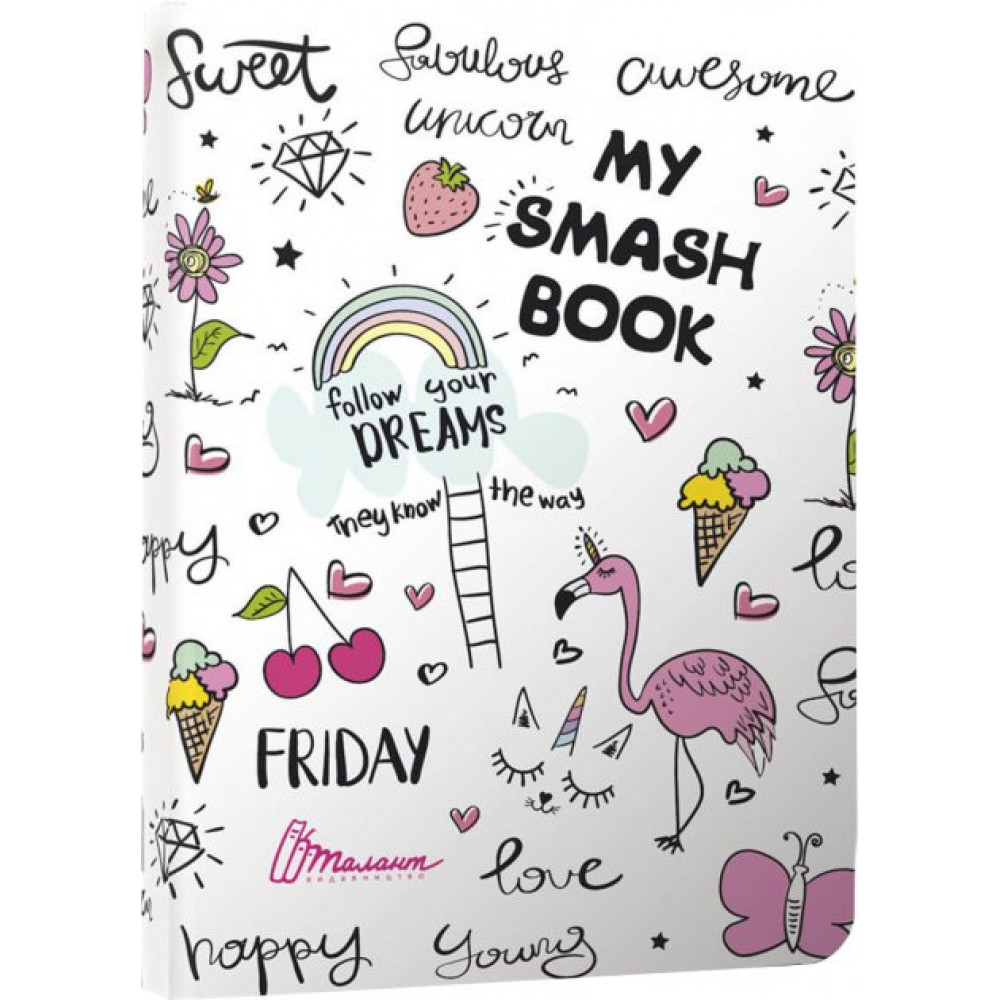 Sweet
fabulous
awesome
unicorn
MY
SMASH
BOOK
follow your
DREAMS
They know the way
FRIDAY
Талант
видавництво
love
happy
young